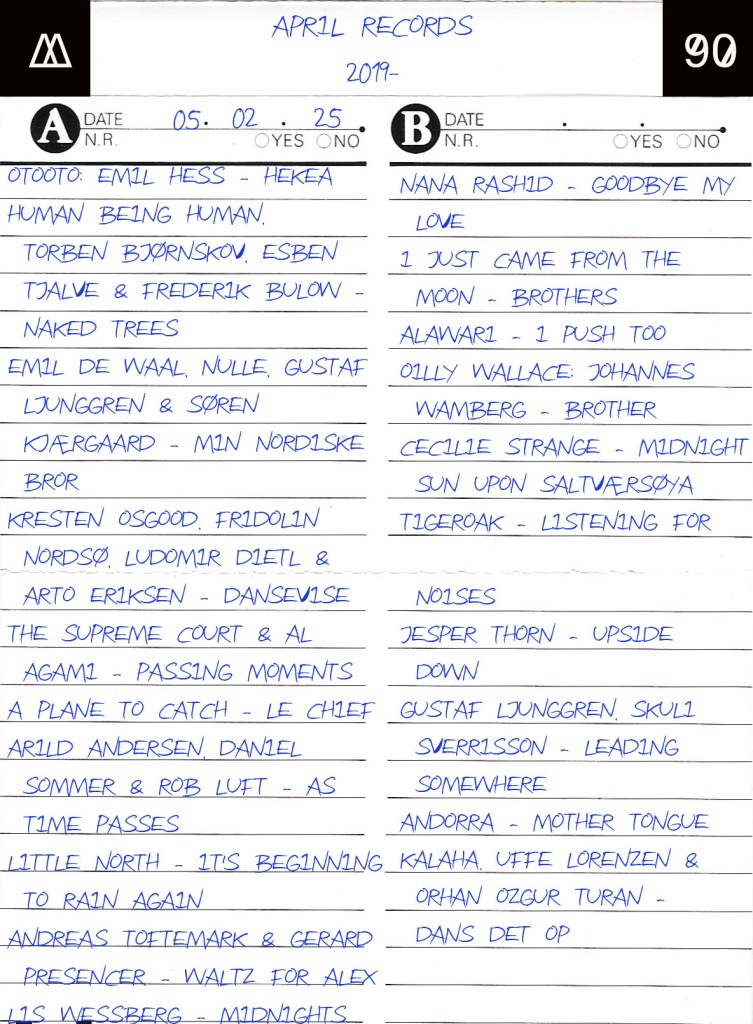 APRIL RECORDS
2019-
90
A DATE 05. 02. 25
N.R. YES NO
OTOOTO: EMIL HESS - HEKEA
HUMAN BEING HUMAN,
TORBEN BJØRNSKOV, ESBEN
TJALVE & FREDERIK BULOW -
NAKED TREES
EMIL DE WAAL, NULLE, GUSTAF
LJUNGGREN & SØREN
KJÆRGAARD - MIN NORDISKE
BROR
KRESTEN OSGOOD, FRIDOLIN
NORDSØ, LUDOMIR DIETL &
ARTO ERIKSEN - DANSEVISE
THE SUPREME COURT & AL
AGAMI - PASSING MOMENTS
A PLANE TO CATCH - LE CHIEF
ARILD ANDERSEN, DANIEL
SOMMER & ROB LUFT - AS
TIME PASSES
LITTLE NORTH - IT'S BEGINNING
TO RAIN AGAIN
ANDREAS TOFTEMARK & GERARD
PRESENCER - WALTZ FOR ALEX
LIS WESSBERG - MIDNIGHTS
B DATE . .
N.R. YES NO
NANA RASHID - GOODBYE MY
LOVE
I JUST CAME FROM THE
MOON - BROTHERS
ALAWARI - I PUSH TOO
OILLY WALLACE: JOHANNES
WAMBERG - BROTHER
CECILIE STRANGE - MIDNIGHT
SUN UPON SALTVÆRSØYA
TIGEROAK - LISTENING FOR
NOISES
JESPER THORN - UPSIDE
DOWN
GUSTAF LJUNGGREN, SKULI
SVERRISSON - LEADING
SOMEWHERE
ANDORRA - MOTHER TONGUE
KALAHA, UFFE LORENZEN &
ORHAN OZGUR TURAN -
DANS DET OP